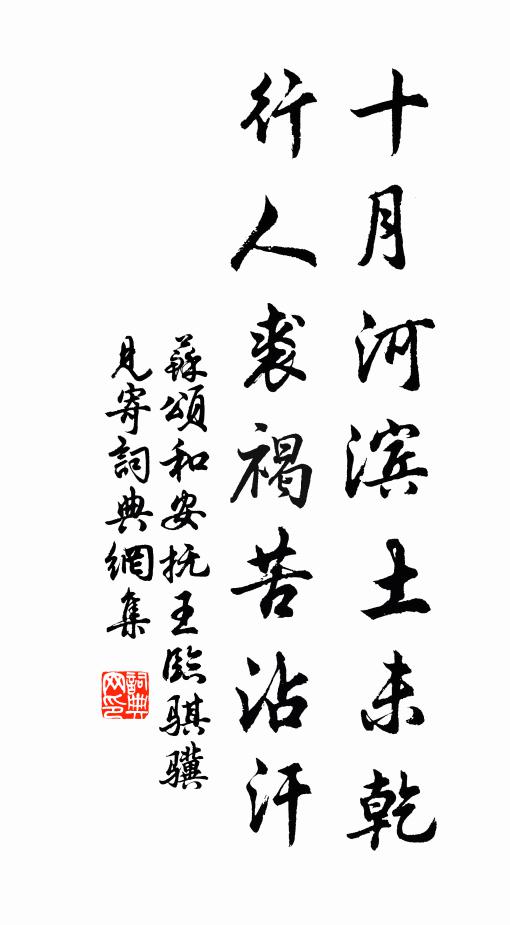 十月河滨土未乾
行人裘褐苦沾汗
蘇頌和安抚王臨骐骥
見寄詞典網集
詞典网印